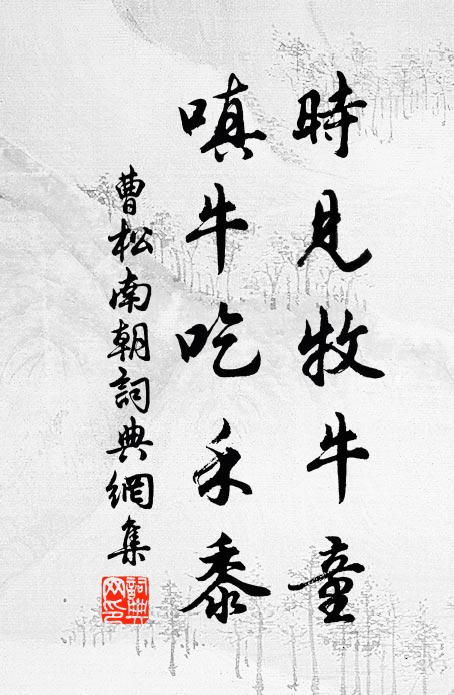 時見牧牛童
嗔牛吃禾黍
曹松南朝詞典網集
詞典網印